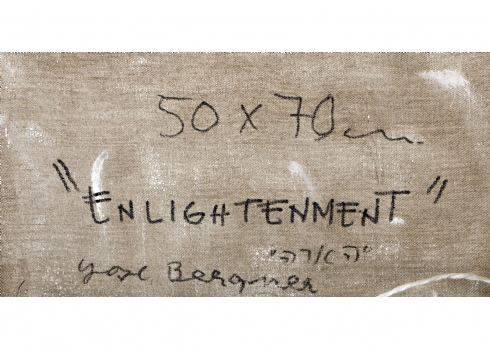 50 x 70 cm.
"ENLIGHTENMENT"
"הארה"
Yosl Bergner